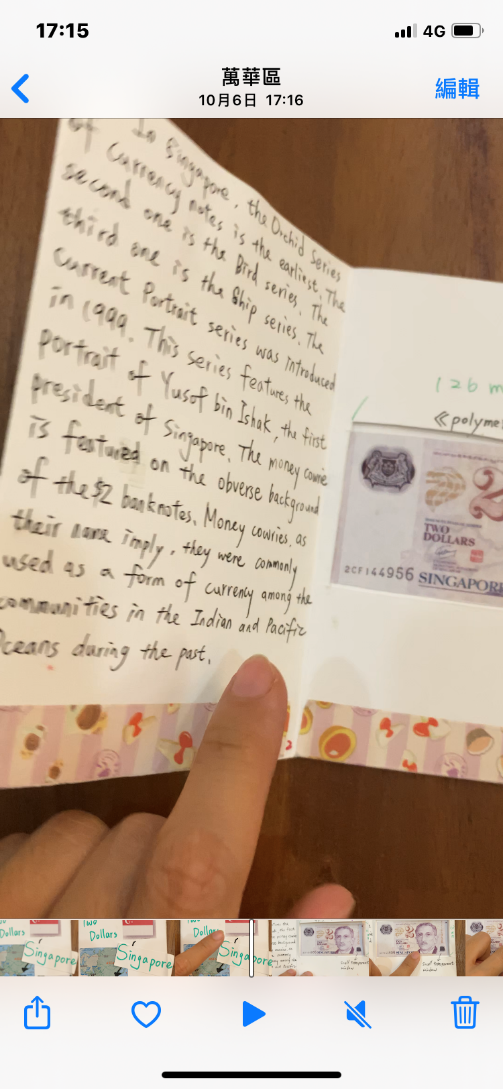 17:15
4G
萬華區
10月6日 17:16
編輯
In Singapore, the Orchid Series
of currency notes is the earliest. The
second one is the Bird series. The
third one is the Ship series. The
Current Portrait series was introduced
in 1999. This series features the
portrait of Yusof bin Ishak, the first
president of Singapore. The money cowrie
is featured on the obverse background
of the $2 banknotes. Money cowries, as
their name imply, they were commonly
used as a form of currency among the
communities in the Indian and Pacific
Oceans during the past.
126 m
≪polyme
2
TWO
DOLLARS
2CF144956 SINGAPOR
Two
Dollars
Singapore
Two
Dollars
Singapore
Two
Dollar
Singapore